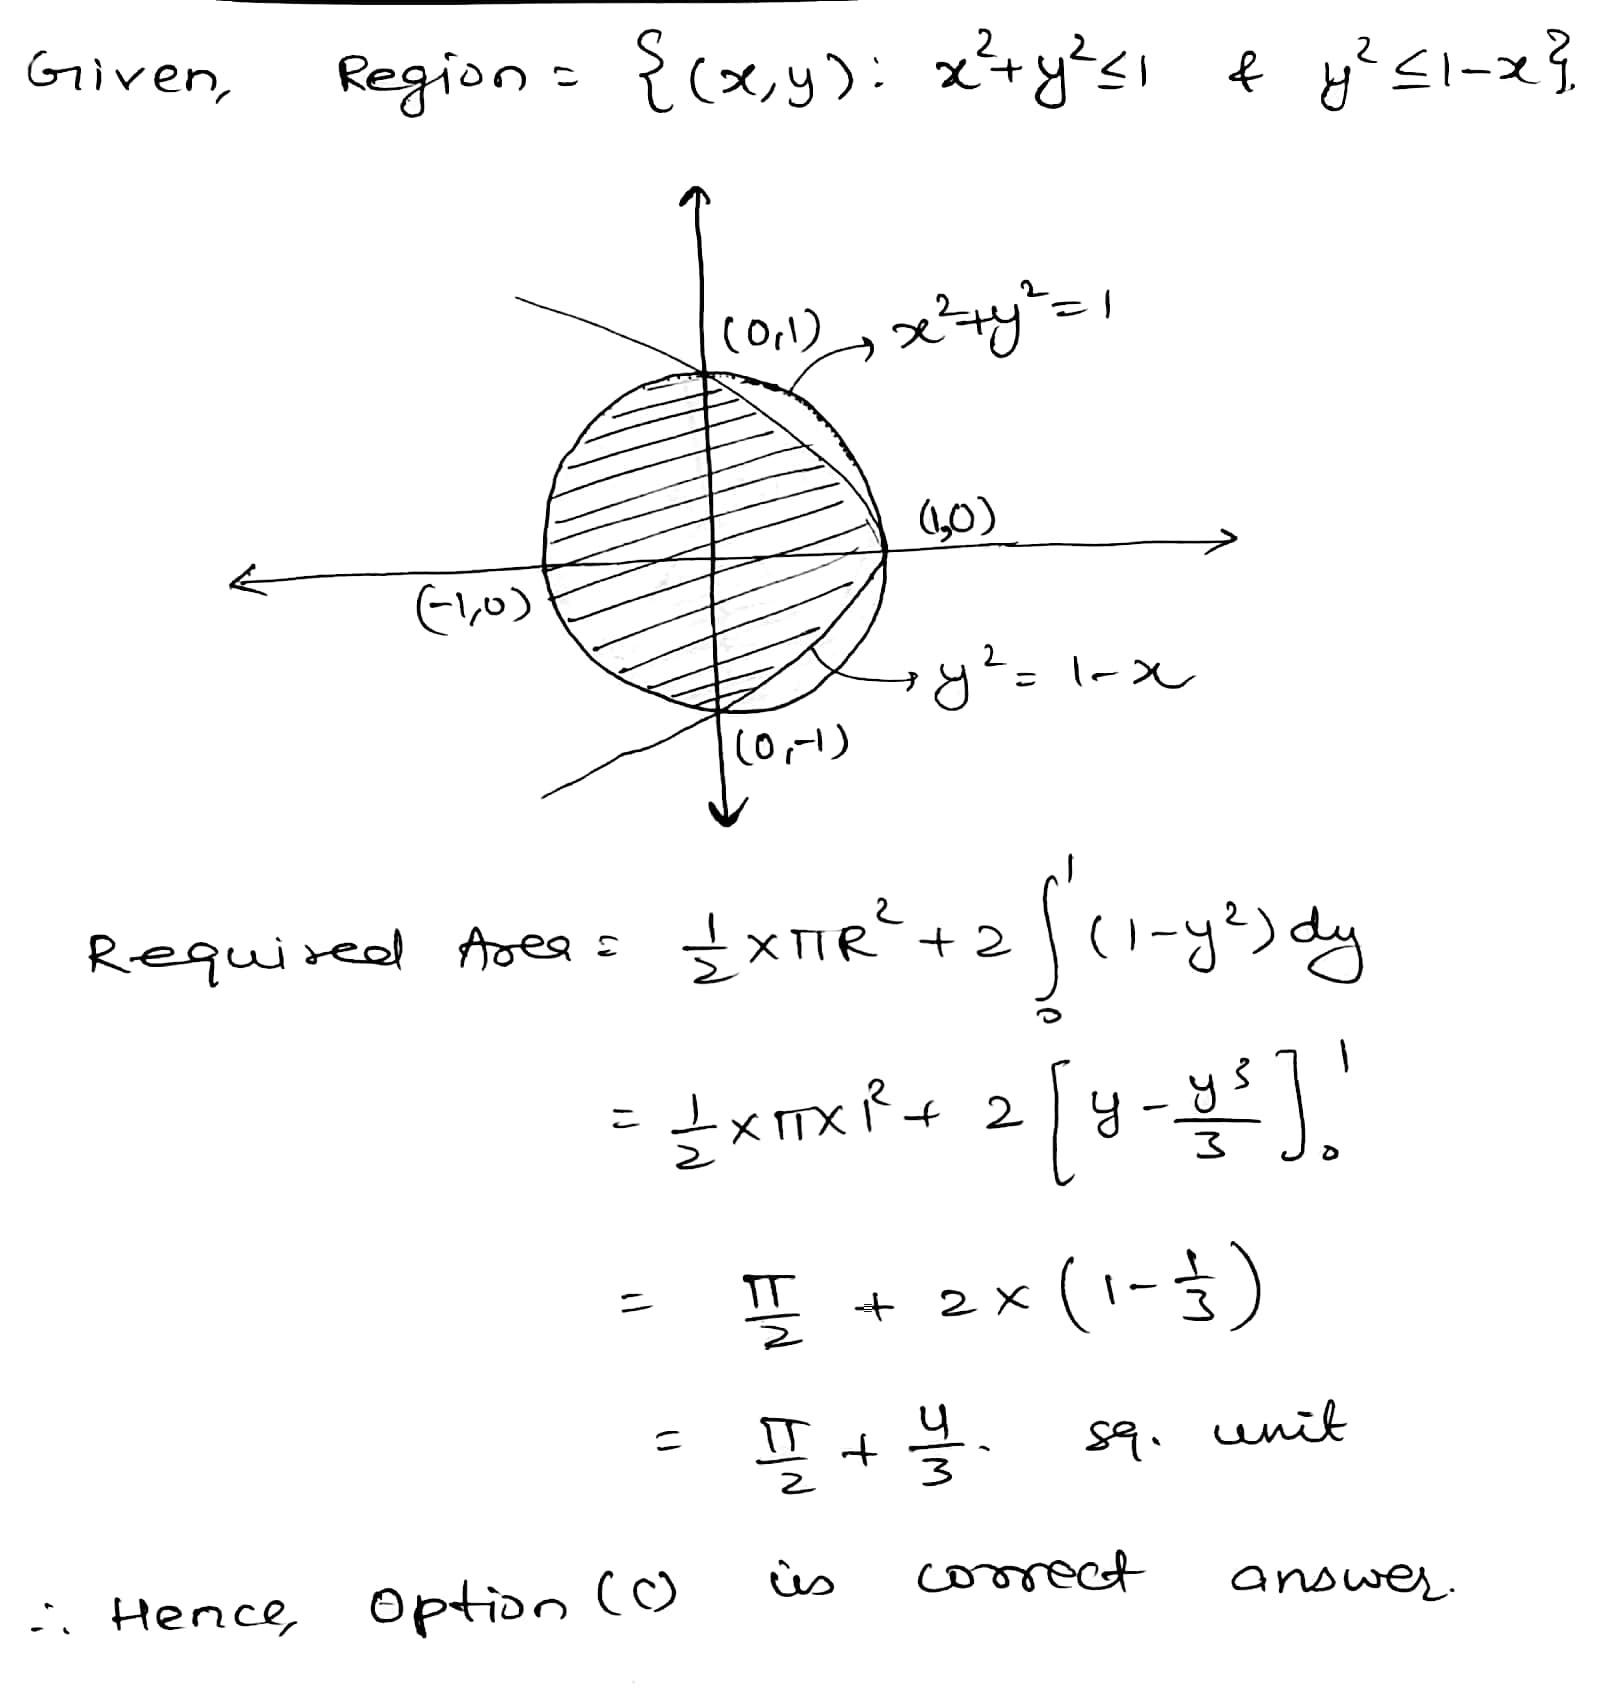 Given, Region = {(x,y): x²+y²≤1 & y²≤1-x}.
(0,1)
x²+y²=1
(1,0)
(-1,0)
y²=1-x
(0,-1)
Required Area = 1/2 × πR² + 2 ∫₀¹ (1-y²) dy
= 1/2 × π × 1² + 2 [y - y³/3]₀¹
= π/2 + 2 × (1 - 1/3)
= π/2 + 4/3. sq. unit
∴ Hence, Option (C) is correct answer.